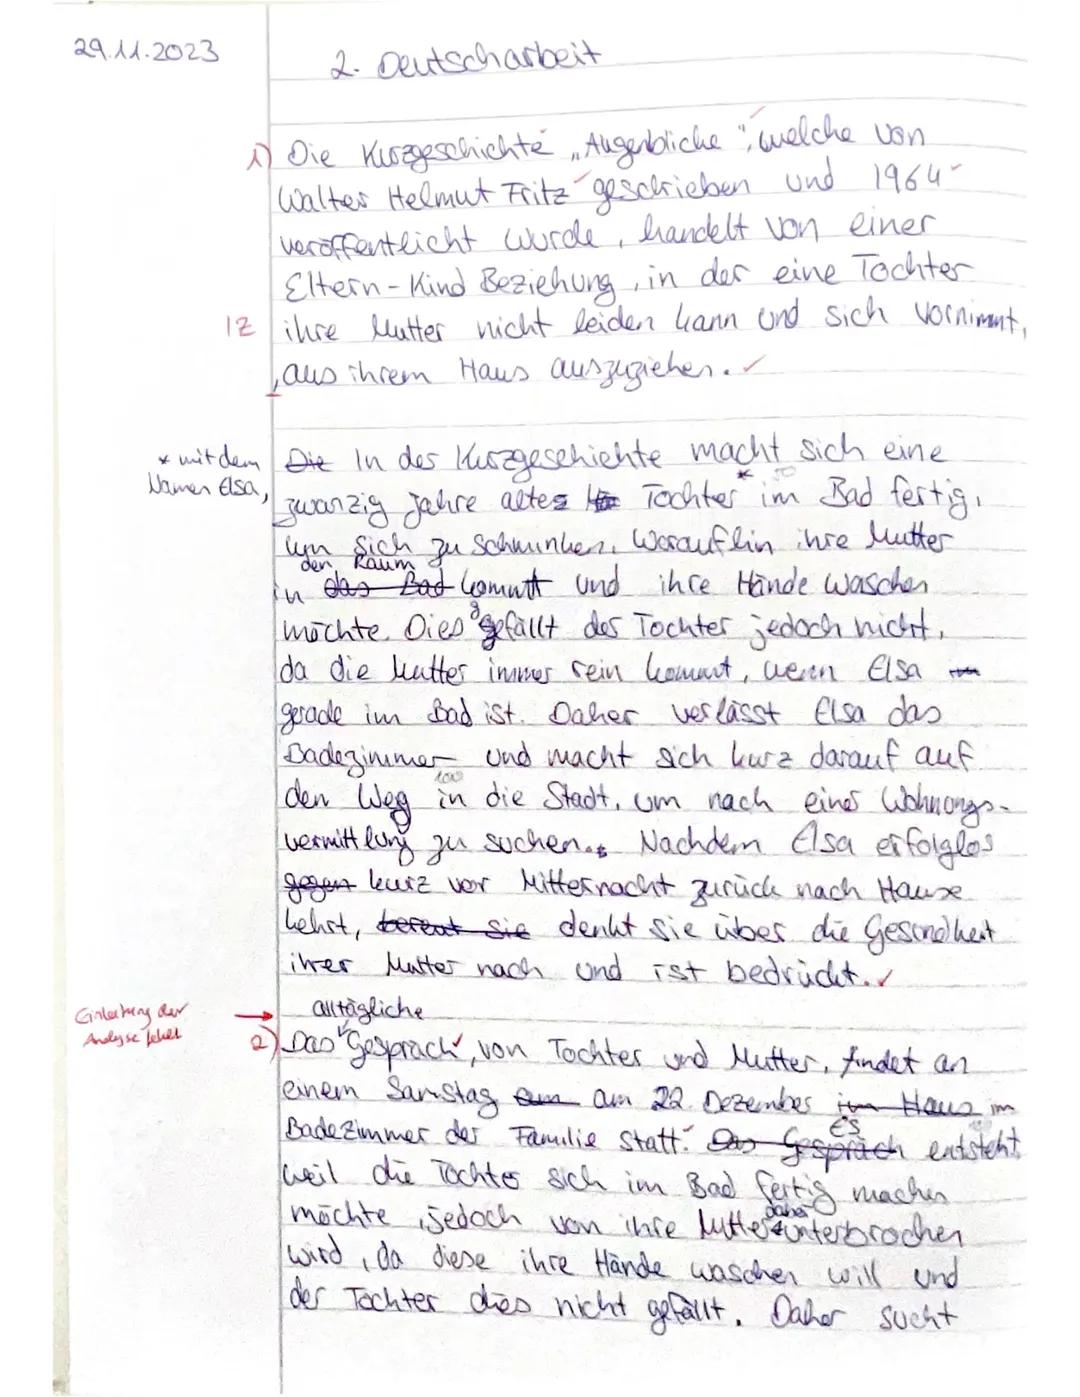 29.11.2023
2. Deutscharbeit
1) Die Kurzgeschichte „Augenblicke", welche von
Walter Helmut Fritz geschrieben und 1964
veröffentlicht wurde, handelt von einer
Eltern-Kind Beziehung, in der eine Tochter
IZ ihre Mutter nicht leiden kann und sich vornimmt,
aus ihrem Haus auszuziehen.
* mit dem
Namen Elsa,
Die In der Kurzgeschichte macht sich eine
zwanzig Jahre alte Tochter* im Bad fertig,
um sich zu schminken. Woraufhin ihre Mutter
den Raum
in das Bad kommt und ihre Hände waschen
möchte. Dies gefällt der Tochter jedoch nicht,
da die Mutter immer rein kommt, wenn Elsa
gerade im Bad ist. Daher verlässt Elsa das
Badezimmer und macht sich kurz darauf auf
100
den Weg in die Stadt, um nach einer Wohnungs-
vermittlung zu suchen. Nachdem Elsa erfolglos
gegen kurz vor Mitternacht zurück nach Hause
kehrt, bereut sie denkt sie über die Gesundheit
ihrer Mutter nach und ist bedrückt.
Einleitung der
Analyse fehlt
alltägliche
2) Das Gespräch, von Tochter und Mutter, findet an
einem Samstag am 22. Dezember im Haus im
Badezimmer der Familie statt. Das Gespräch Es entsteht,
weil die Tochter sich im Bad fertig machen
möchte, jedoch von ihre Mutter dabei unterbrochen
wird, da diese ihre Hände waschen will und
der Tochter dies nicht gefällt. Daher sucht